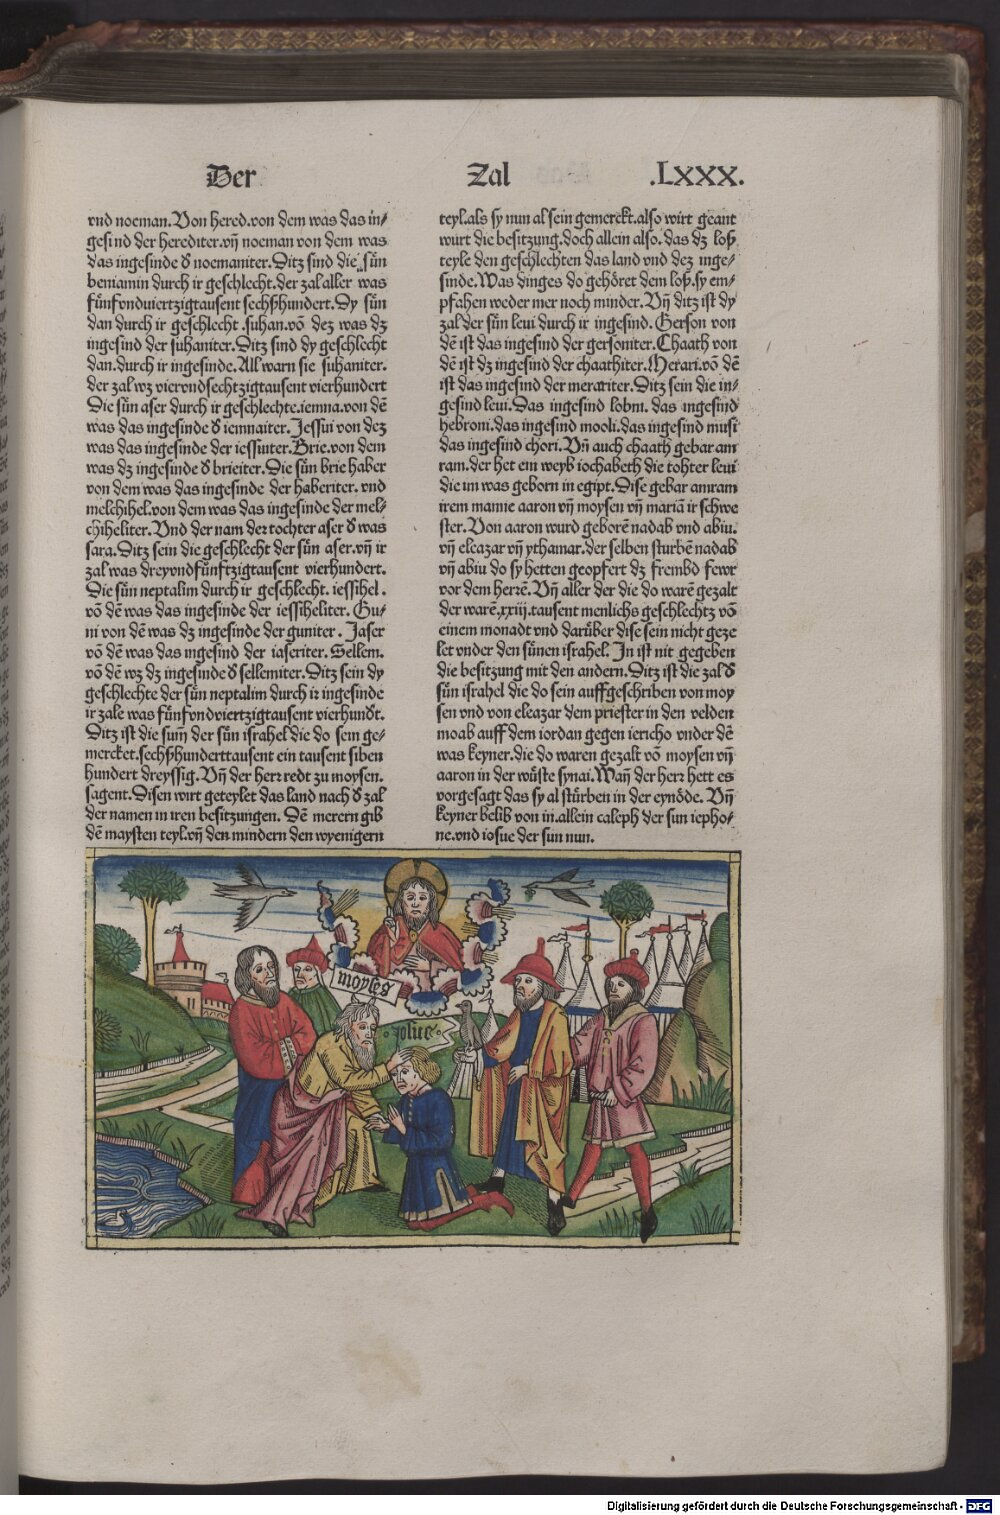 Der Zal .LXXX.
vnd noeman. Von hered. von dem was das in/
gesind der herediter. vñ noeman von dem was
das ingesinde d noemaniter. Ditz sind die sün
beniamin durch ir geschlecht. der zal aller was
fünfvndviertzigtausent sechßhundert. Dy sün
dan durch ir geschlecht .suhan. võ dez was dz
ingesind der suhaniter. Ditz sind dy geschlecht
dan. durch ir ingesinde. All warn sie suhaniter.
der zal wz viervndsechtzigtausent vierhundert
Die sün aser durch ir geschlechte. iemna. von dē
was das ingesinde d iemnaiter. Jessui von dez
was das ingesinde der iessuiter. Brie. von dem
was dz ingesinde d brieiter. Die sün brie haber
von dem was das ingesinde der haberiter. vnd
melchihel. von dem was das ingesinde der mel/
chiheliter. Vnd der nam der tochter aser d was
sara. Ditz sein die geschlecht der sün aser. vñ ir
zal was dreyvndfünftzigtausent vierhundert.
Die sün neptalim durch ir geschlecht. iessihel.
võ dē was das ingesinde der iessiheliter. Gu/
ni von dē was dz ingesinde der guniter. Jaser
võ dē was das ingesind der iaseriter. Sellem.
võ dē wz dz ingesinde d sellemiter. Ditz sein dy
geschlechte der sün neptalim durch ir ingesinde
ir zale was fünfvndviertzigtausent vierhundt.
Ditz ist die sum̄ der sün israhel die do sein ge/
mercket. sechßhunderttausent ein tausent siben
hundert dreyssig. Vñ der herr redt zu moysen.
sagent. Disen wirt geteylet das land nach d zal
der namen in iren besitzungen. Dē merern gib
dē maysten teyl. vñ den mindern den wyenigern
teyl. als sy nun al sein gemerckt. also wirt geant
wurt die besitzung. doch allein also. das dz loß
teyle den geschlechten das land vnd dez inge/
sinde. Was dinges do gehöret dem loß. sy em/
pfahen weder mer noch minder. Vñ ditz ist dy
zal der sün leui durch ir ingesind. Gerson von
dē ist das ingesind der gersoniter. Chaath von
dē ist dz ingesind der chaathiter. Merari. võ dē
ist das ingesind der merariter. Ditz sein die in/
gesind leui. Das ingesind lobni. das ingesind
hebroni. das ingesind mooli. das ingesind musi
das ingesind chori. Vñ auch chaath gebar am
ram. der het ein weyb iochabeth die tohter leui
die im was geborn in egipt. Dise gebar amram
irem manne aaron vñ moysen vñ mariā ir schwe
ster. Von aaron wurd geborē nadab vnd abiu.
vñ eleazar vñ ythamar. der selben sturbē nadab
vñ abiu do sy hetten geopfert dz frembd fewr
vor dem herrē. Vñ aller der die do warē gezalt
der warē. xxiij. tausent menlichs geschlechtz võ
einem monadt vnd darüber dise sein nicht geze
let vnder den sünen israhel. Jn ist nit gegeben
die besitzung mit den andern. Ditz ist die zal d
sün israhel die do sein auffgeschriben von moy
sen vnd von eleazar dem priester in den velden
moab auff dem iordan gegen iericho vnder dē
was keyner. die do waren gezalt võ moysen vñ
aaron in der wüste synai. Wañ der herr hett es
vorgesagt das sy al stürben in der eynöde. Vñ
keyner belib von in. allein caleph der sun iepho/
ne. vnd iosue der sun nun.
moyses
iosue
Digitalisierung gefördert durch die Deutsche Forschungsgemeinschaft - DFG